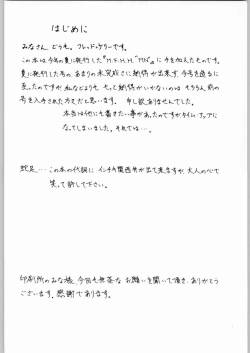 はじめに
みなさん、どうも。フレッド・ケリーです。
この本は今年の夏に発行した
に手を加えたものです。
夏に発行した号の、あまりの未完成さに納得が出来ず、今号を過去に
戻ったのですが、私などよりも、もっと納得がいかないのは、もちろん、前の
号を入手された方々だと思います。申し訳ありませんでした。
本当は他にも書きたい事があったのですがタイム・アップに
なってしまいました。それでは…。
蛇足…この本の代詞に、インチキ関西弁が出て来ますが、大人の心で
笑って許して下さい。
印刷所のみな様、今回も無茶なお願いを聞いて頂き、ありがとう
ございます。感謝であります。